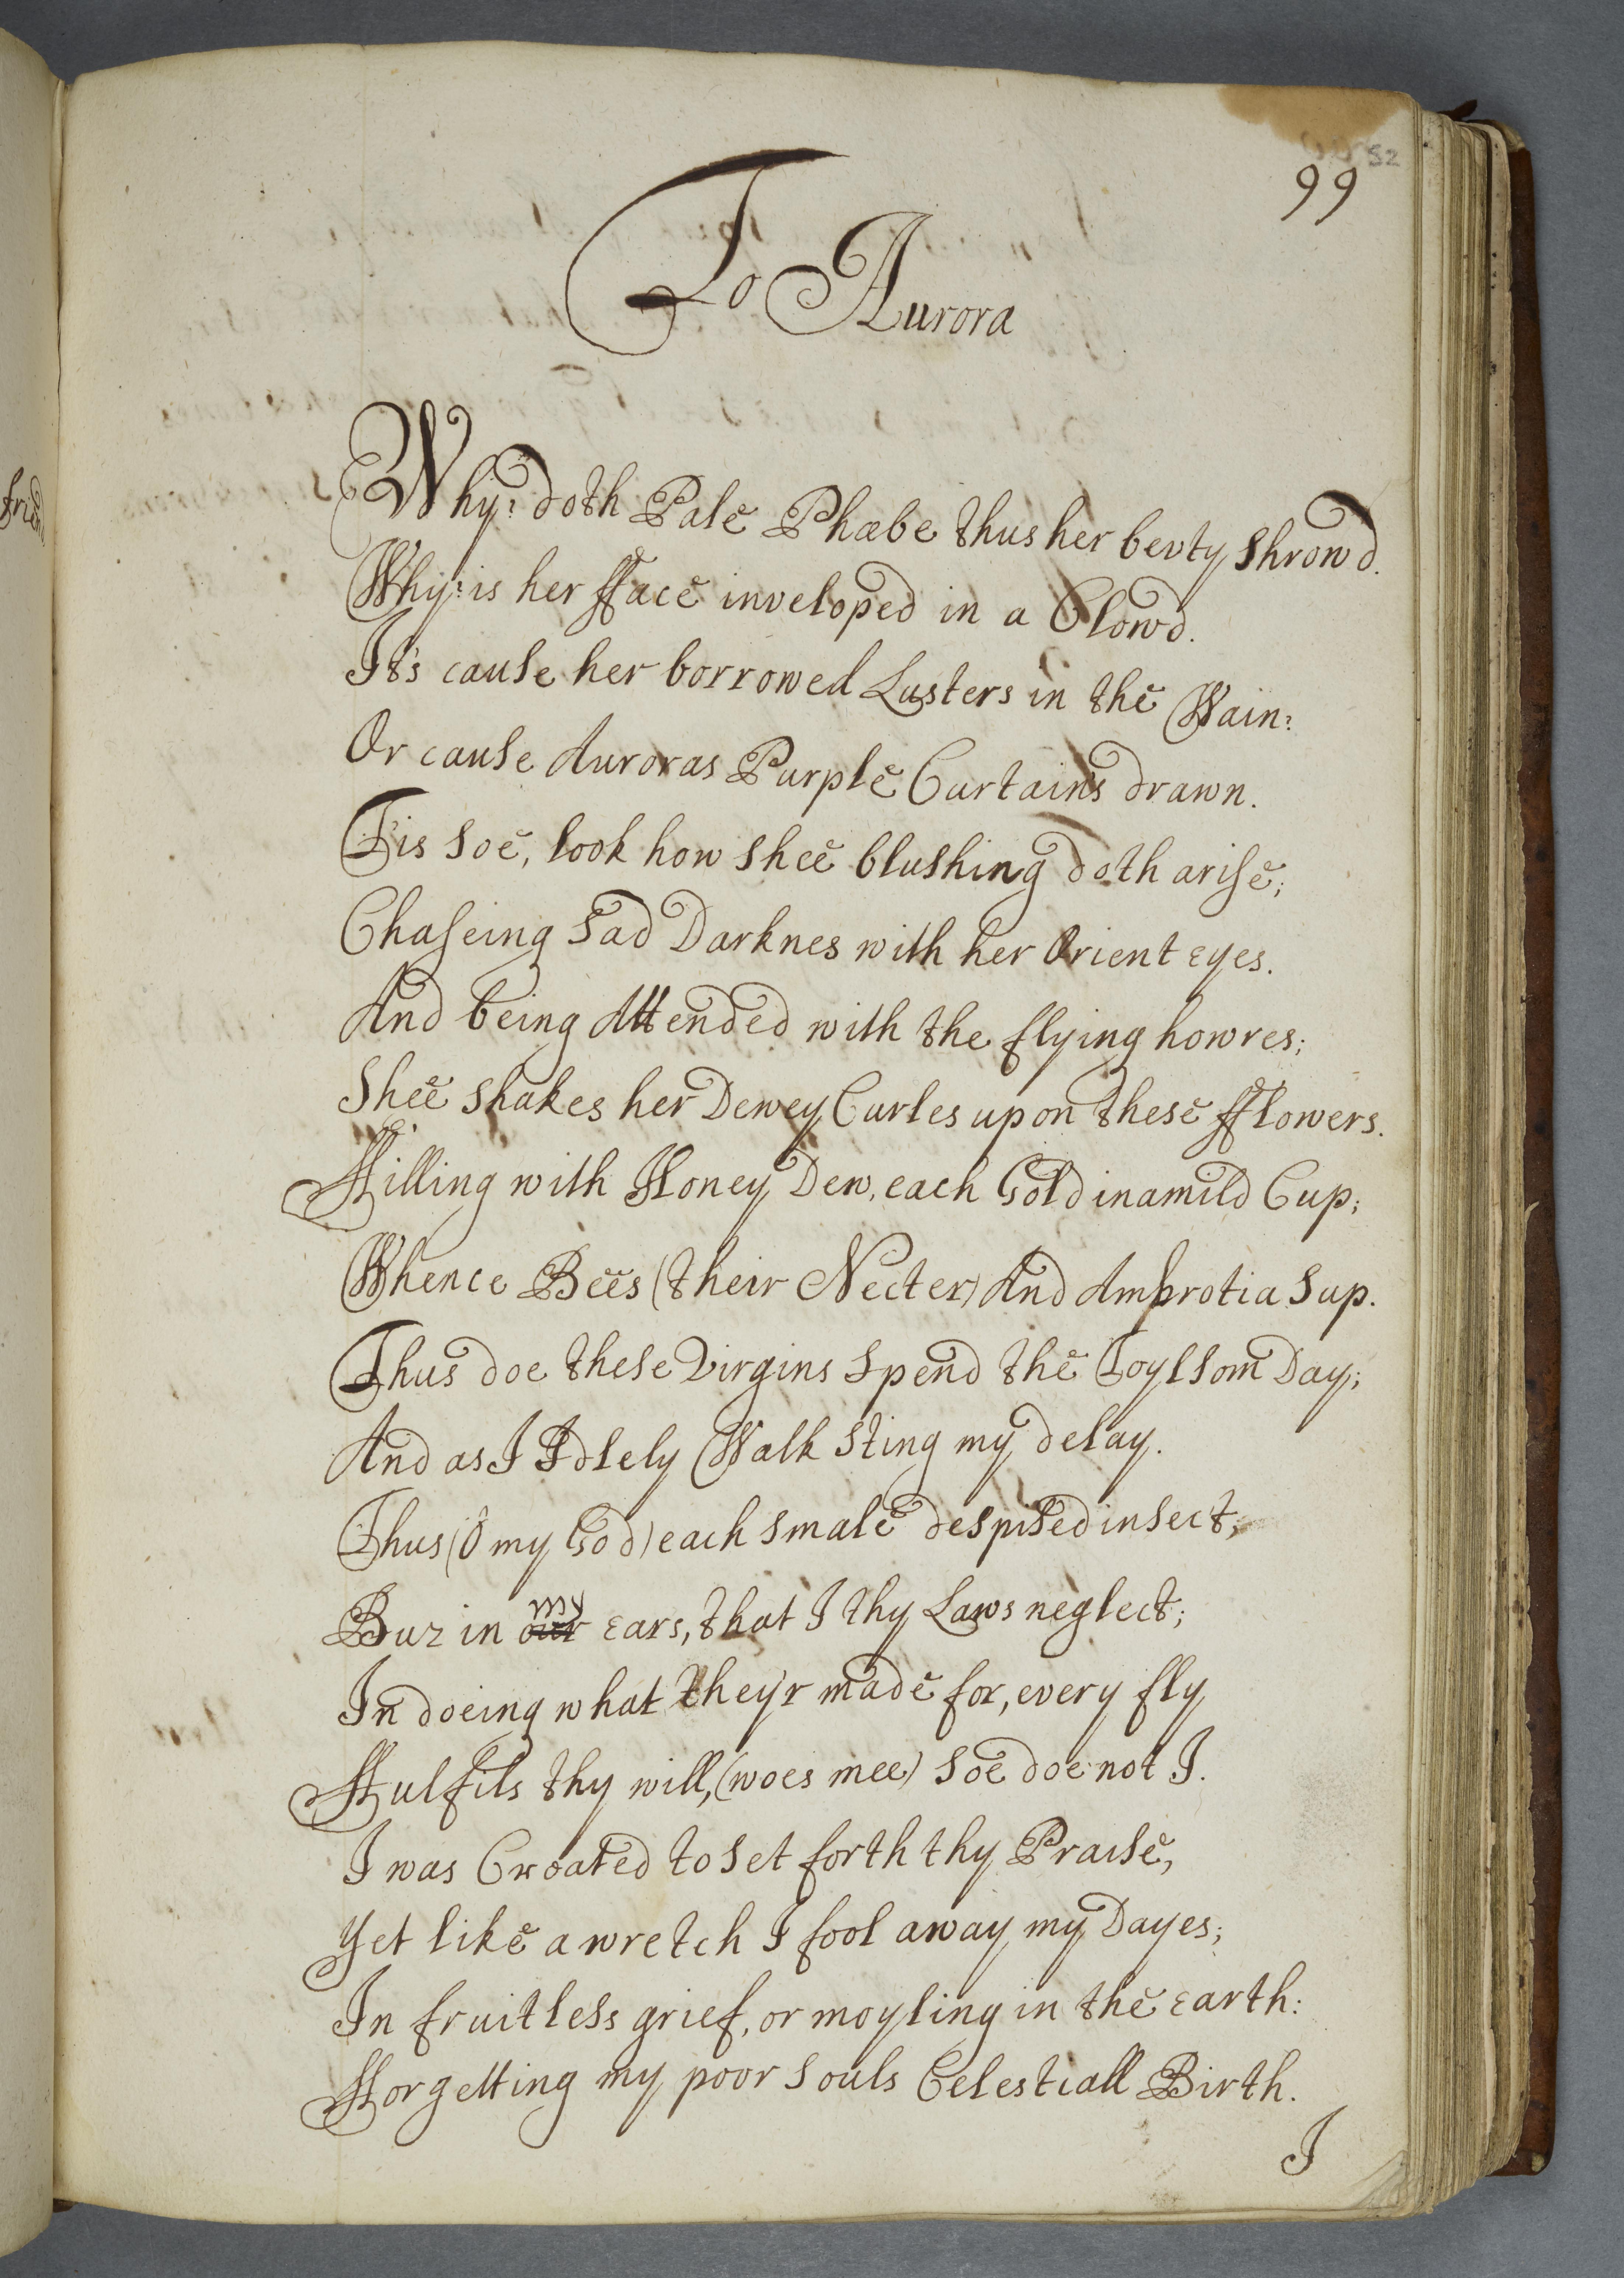 52
99
To Aurora
Why? doth Pale Phœbe thus her bevty shrowd.
Why? is her fface inveloped in a Clowd.
It's cause her borrowed Lusters in the Wain?
Or cause Auroras Purple Curtains drawn.
Tis soe, look how shee blushing doth arise;
Chaseing sad Darknes with her Orient eyes.
And being Attended with the flying howres;
Shee shakes her Dewey Curles upon these fflowers.
Filling with Honey Dew, each Gold inamild Cup;
Whence Bees (their Necter) And Ambrotia sup.
Thus doe these Virgins spend the Toylsom Day;
And as I Idlely Walk sting my delay.
Thus (ô my God) each smale despised insect,
Buz in our my ears, that I thy Laws neglect;
In doeing what they'r made for, every fly
Fulfils thy will, (woes mee) soe doe not I.
I was Created to set forth thy Praise,
Yet like a wretch I fool away my Dayes;
In fruitless grief, or moyling in the earth:
Forgetting my poor souls Celestiall Birth.
I